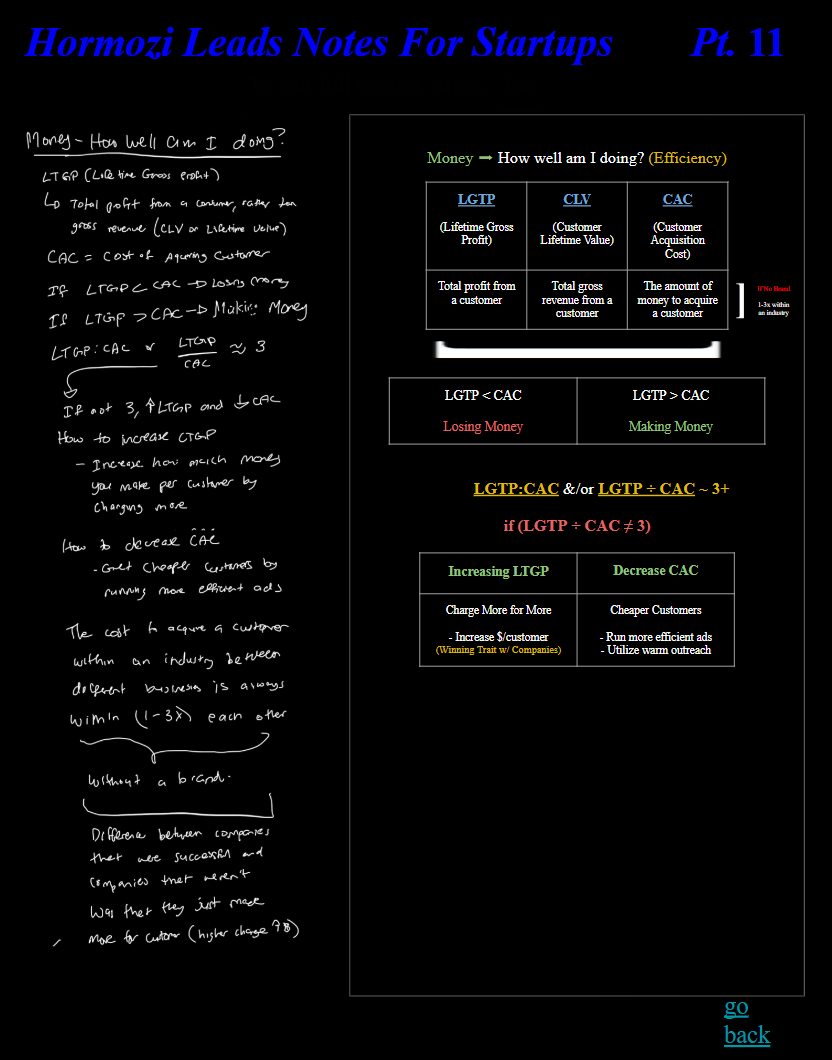 Hormozi Leads Notes For Startups Pt. 11
Money - How well am I doing?
LTGP (Lifetime Gross profit)
↳ Total profit from a consumer, rather than
gross revenue (CLV or Lifetime value)
CAC = Cost of Aquering Customer
If LTGP < CAC → Losing money
If LTGP > CAC → Making Money
LTGP:CAC or LTGP / CAC ≈ 3
If not 3, ↑ LTGP and ↓ CAC
How to increase LTGP
- Increase how much money
you make per customer by
Charging more
How to decrease CAC
- Get cheaper customers by
running more efficient ads
The cost to acquire a customer
within an industry between
different businesses is always
within (1-3x) each other
without a brand.
Difference between companies
that were successful and
companies that weren't
Was that they just made
More for customer (higher charge
Money → How well am I doing? (Efficiency)
LGTP CLV CAC
(Lifetime Gross Profit) (Customer Lifetime Value) (Customer Acquisition Cost)
Total profit from a customer Total gross revenue from a customer The amount of money to acquire a customer
If No Brand
1-3x within
an industry
LGTP < CAC LGTP > CAC
Losing Money Making Money
LGTP:CAC &/or LGTP ÷ CAC ~ 3+
if (LGTP ÷ CAC ≠ 3)
Increasing LTGP Decrease CAC
Charge More for More Cheaper Customers
- Increase $/customer - Run more efficient ads
(Winning Trait w/ Companies) - Utilize warm outreach
go
back